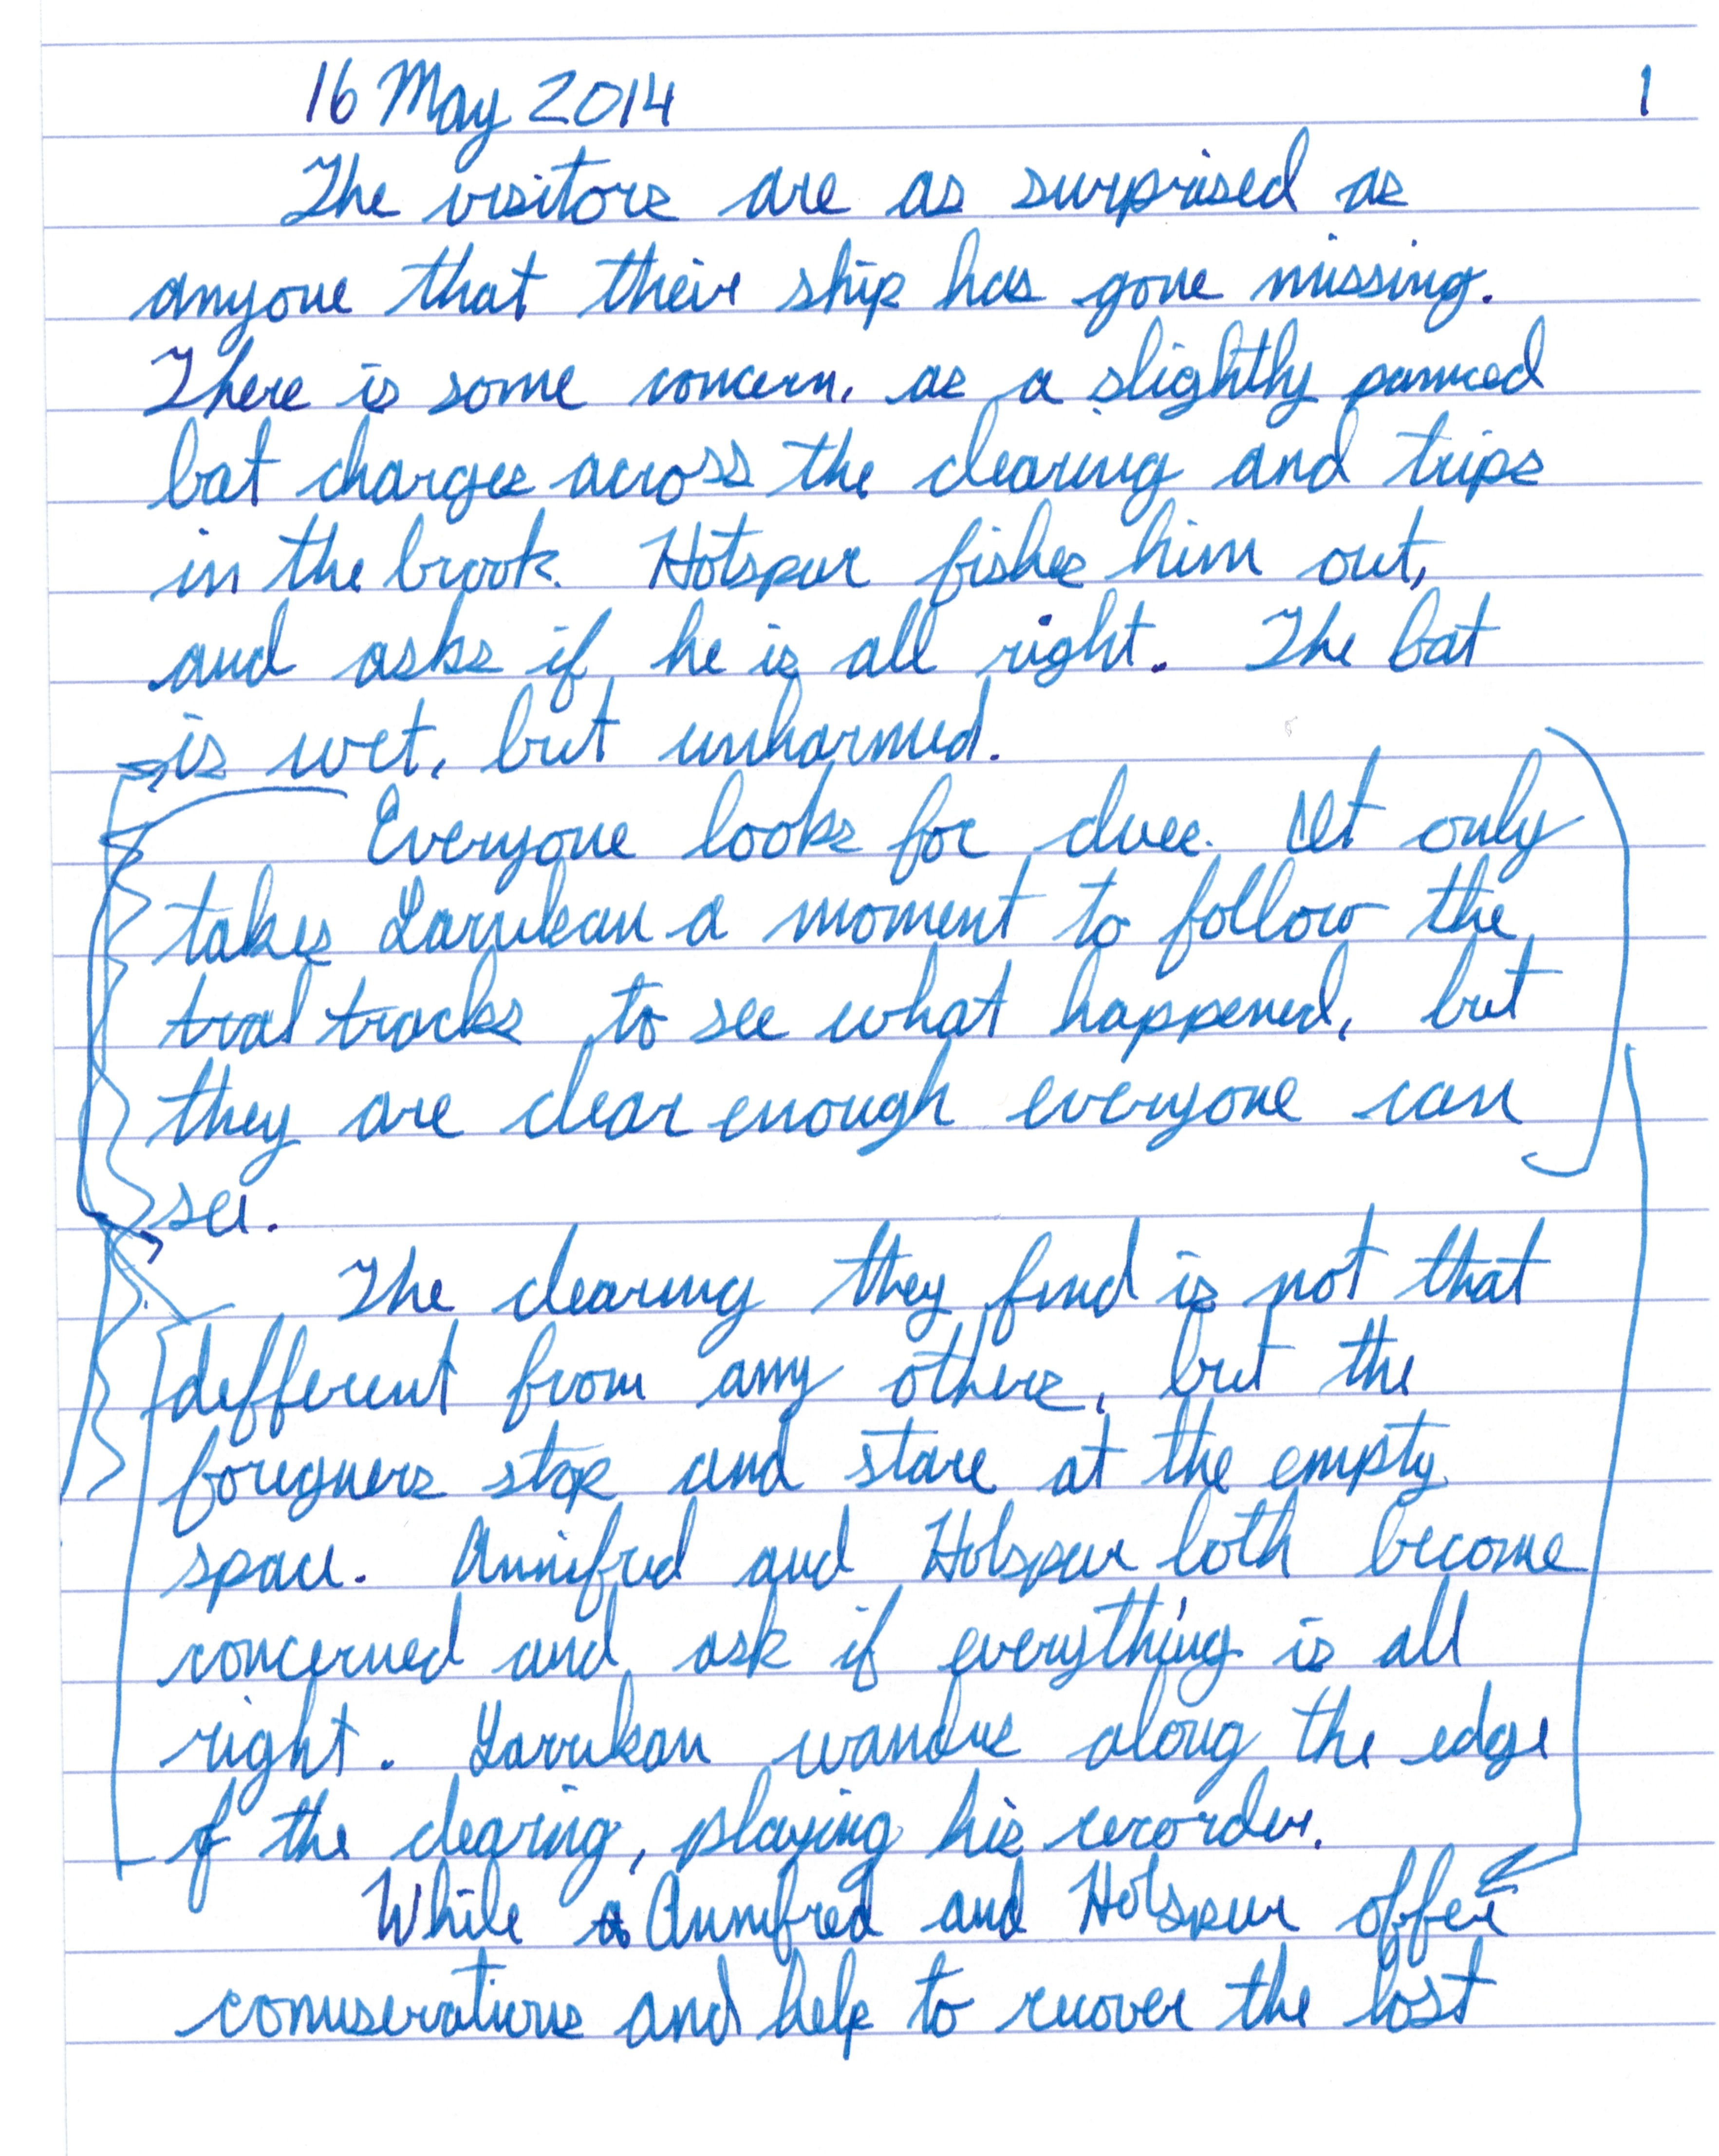 16 May 2014 1
The visitors are as surprised as
anyone that their ship has gone missing.
There is some concern, as a slightly panicked
bat charges across the clearing and trips
in the brook. Hotspur fishes him out,
and asks if he is all right. The bat
is wet, but unharmed.
Everyone looks for clues. It only
takes Larrukan a moment to follow the
trail tracks to see what happened, but
they are clear enough everyone can
see.
The clearing they find is not that
different from any others, but the
foreigners stop and stare at the empty
space. Annifred and Hotspur both become
concerned and ask if everything is all
right. Larrukan wanders along the edge
of the clearing, playing his recorder.
While Annifred and Hotspur offer
comiserations and help to recover the lost